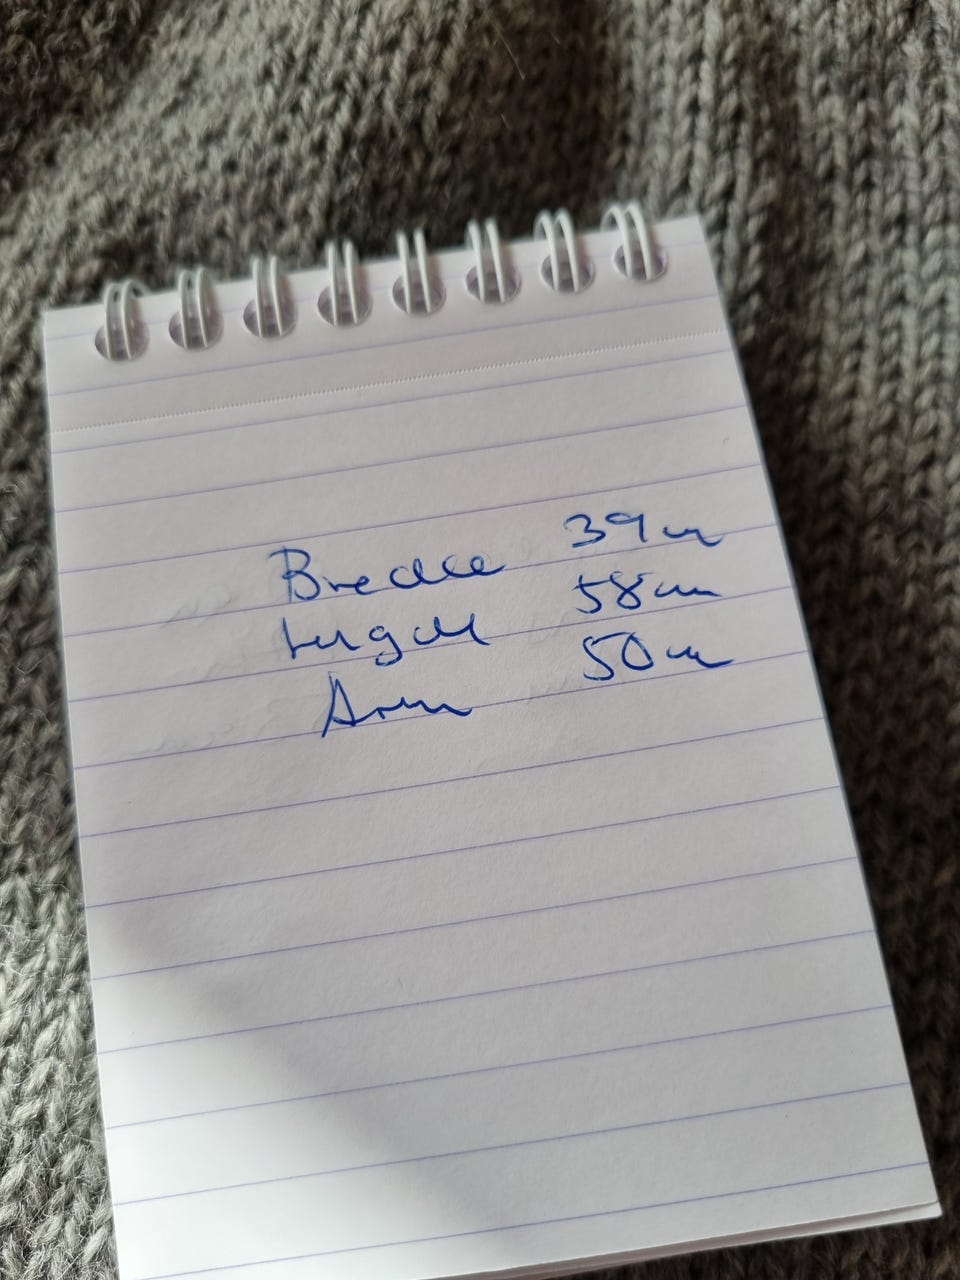 Bredde 39 cm
Lengde 58 cm
Arm 50 cm